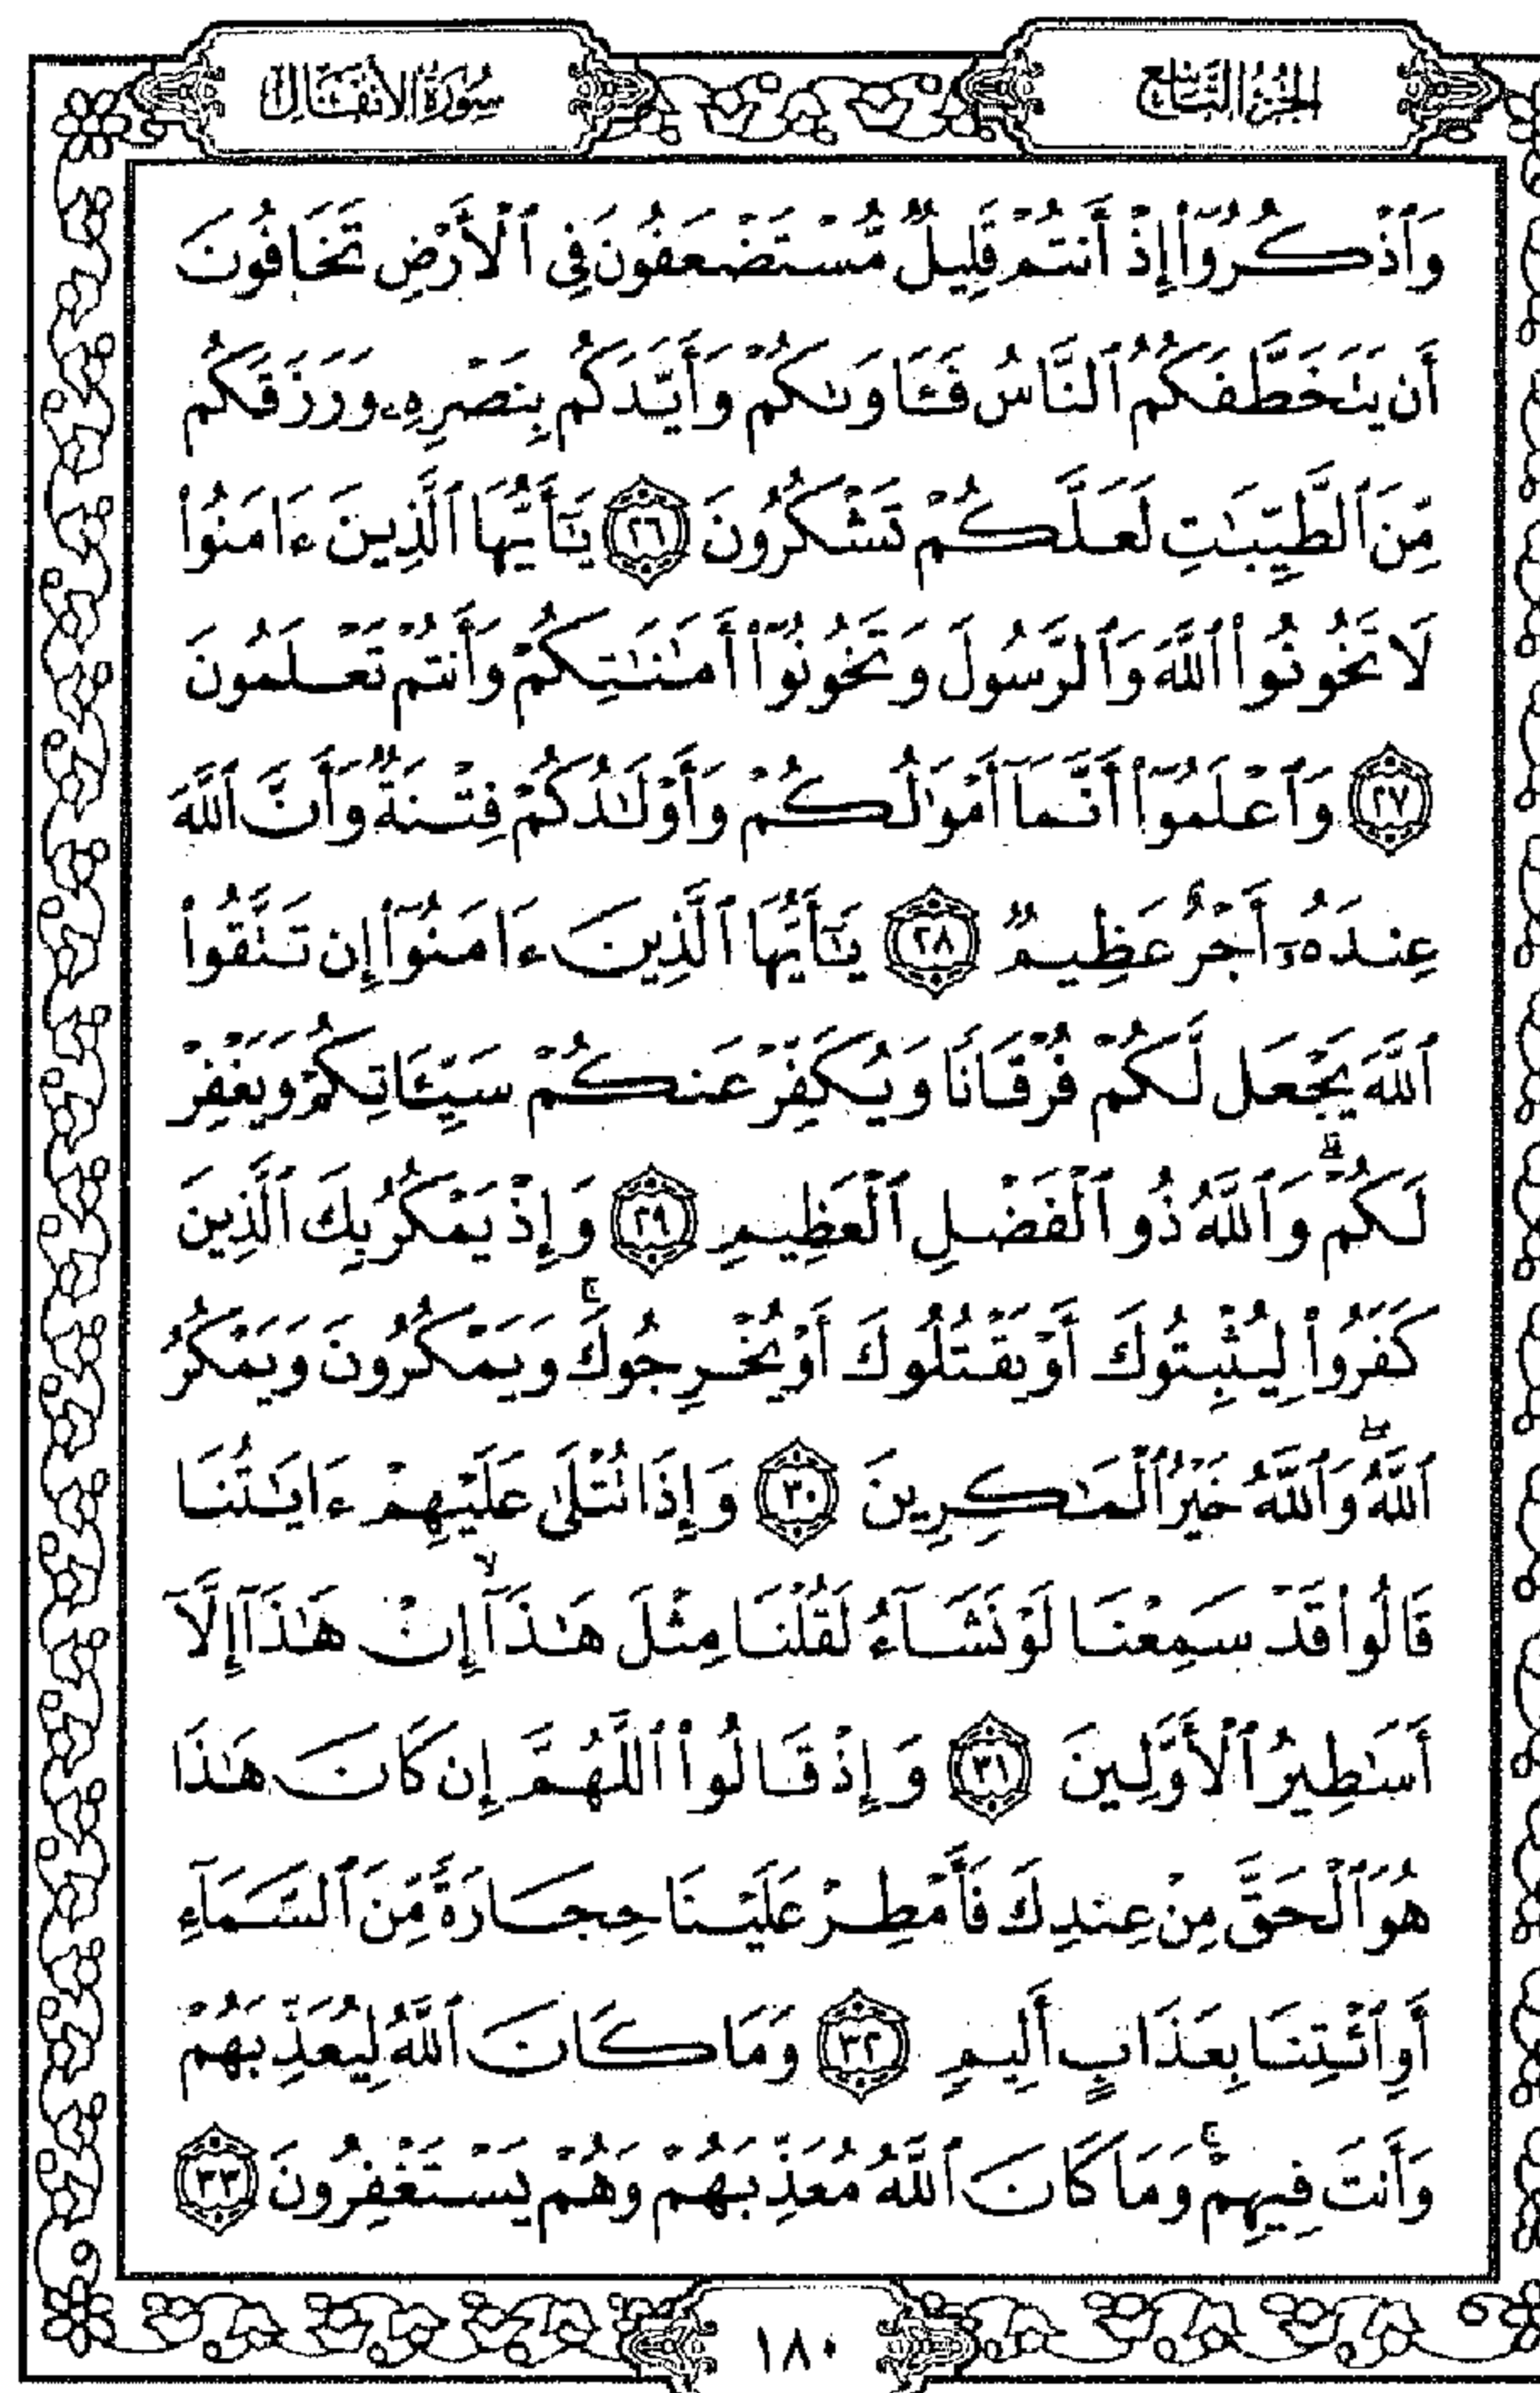 الجزء التاسع
سورة الأنفال
وَٱذْكُرُوٓا۟ إِذْ أَنتُمْ قَلِيلٌ مُّسْتَضْعَفُونَ فِى ٱلْأَرْضِ تَخَافُونَ
أَن يَتَخَطَّفَكُمُ ٱلنَّاسُ فَـَٔاوَىٰكُمْ وَأَيَّدَكُم بِنَصْرِهِۦ وَرَزَقَكُم
مِّنَ ٱلطَّيِّبَـٰتِ لَعَلَّكُمْ تَشْكُرُونَ ٢٦ يَـٰٓأَيُّهَا ٱلَّذِينَ ءَامَنُوا۟
لَا تَخُونُوا۟ ٱللَّهَ وَٱلرَّسُولَ وَتَخُونُوٓا۟ أَمَـٰنَـٰتِكُمْ وَأَنتُمْ تَعْلَمُونَ
٢٧ وَٱعْلَمُوٓا۟ أَنَّمَآ أَمْوَٰلُكُمْ وَأَوْلَـٰدُكُمْ فِتْنَةٌ وَأَنَّ ٱللَّهَ
عِندَهُۥٓ أَجْرٌ عَظِيمٌ ٢٨ يَـٰٓأَيُّهَا ٱلَّذِينَ ءَامَنُوٓا۟ إِن تَتَّقُوا۟
ٱللَّهَ يَجْعَل لَّكُمْ فُرْقَانًا وَيُكَفِّرْ عَنكُمْ سَيِّـَٔاتِكُمْ وَيَغْفِرْ
لَكُمْ ۗ وَٱللَّهُ ذُو ٱلْفَضْلِ ٱلْعَظِيمِ ٢٩ وَإِذْ يَمْكُرُ بِكَ ٱلَّذِينَ
كَفَرُوا۟ لِيُثْبِتُوكَ أَوْ يَقْتُلُوكَ أَوْ يُخْرِجُوكَ ۚ وَيَمْكُرُونَ وَيَمْكُرُ
ٱللَّهُ ۖ وَٱللَّهُ خَيْرُ ٱلْمَـٰكِرِينَ ٣٠ وَإِذَا تُتْلَىٰ عَلَيْهِمْ ءَايَـٰتُنَا
قَالُوا۟ قَدْ سَمِعْنَا لَوْ نَشَآءُ لَقُلْنَا مِثْلَ هَـٰذَآ ۙ إِنْ هَـٰذَآ إِلَّآ
أَسَـٰطِيرُ ٱلْأَوَّلِينَ ٣١ وَإِذْ قَالُوا۟ ٱللَّهُمَّ إِن كَانَ هَـٰذَا
هُوَ ٱلْحَقَّ مِنْ عِندِكَ فَأَمْطِرْ عَلَيْنَا حِجَارَةً مِّنَ ٱلسَّمَآءِ
أَوِ ٱئْتِنَا بِعَذَابٍ أَلِيمٍ ٣٢ وَمَا كَانَ ٱللَّهُ لِيُعَذِّبَهُمْ
وَأَنتَ فِيهِمْ ۚ وَمَا كَانَ ٱللَّهُ مُعَذِّبَهُمْ وَهُمْ يَسْتَغْفِرُونَ ٣٣
١٨٠